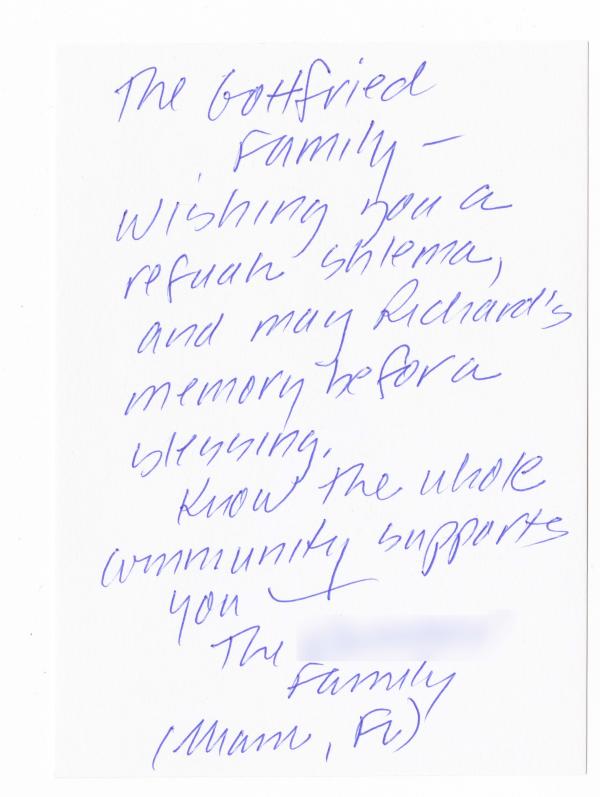 The Gottfried
Family –
Wishing you a
refuah shlema,
and may Richard's
memory be for a
blessing.
Know the whole
community supports
you –
The
Family
(Miami, FL)